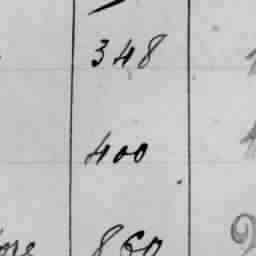 348
400
860